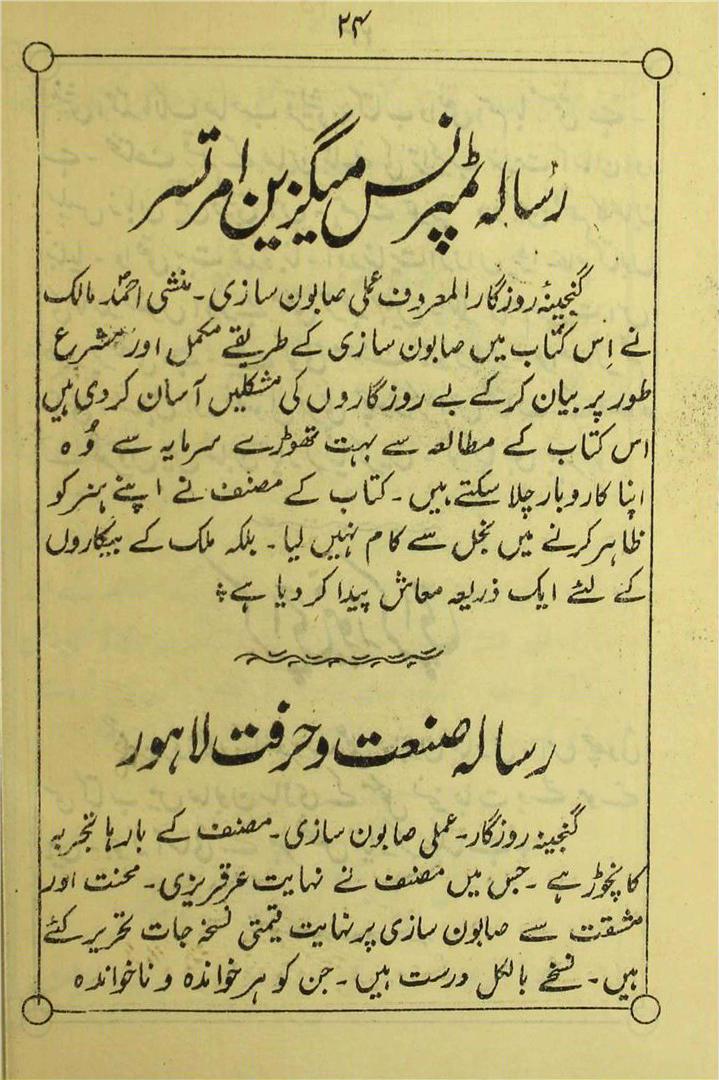 ۲۴
رسالہ ٹمپرنس میگزین امرتسر
گنجینۂ روزگار المعروف عملی صابون سازی۔ منشی احمد مالک
نے اِس کتاب میں صابون سازی کے طریقے مکمل اور مشرع
طور پر بیان کرکے بے روزگاروں کی مشکلیں آسان کردی ہیں
اس کتاب کے مطالعہ سے بہت تھوڑے سرمایہ سے وُہ
اپنا کاروبار چلا سکتے ہیں۔ کتاب کے مصنف نے اپنے ہنر کو
ظاہر کرنے میں بخل سے کام نہیں لیا۔ بلکہ ملک کے بیکاروں
کے لئے ایک ذریعہ معاش پیدا کردیا ہے؞
رسالہ صنعت و حرفت لاہور
گنجینہ روزگار۔ عملی صابون سازی۔ مصنف کے بارہا تجربہ
کا نچوڑ ہے۔ جس میں مصنف نے نہایت عرقریزی۔ محنت اور
مشقت سے صابون سازی پر نہایت قیمتی نسخہ جات تحریر کئے
ہیں۔ نسخے بالکل درست ہیں۔ جن کو ہر خواندہ و ناخواندہ